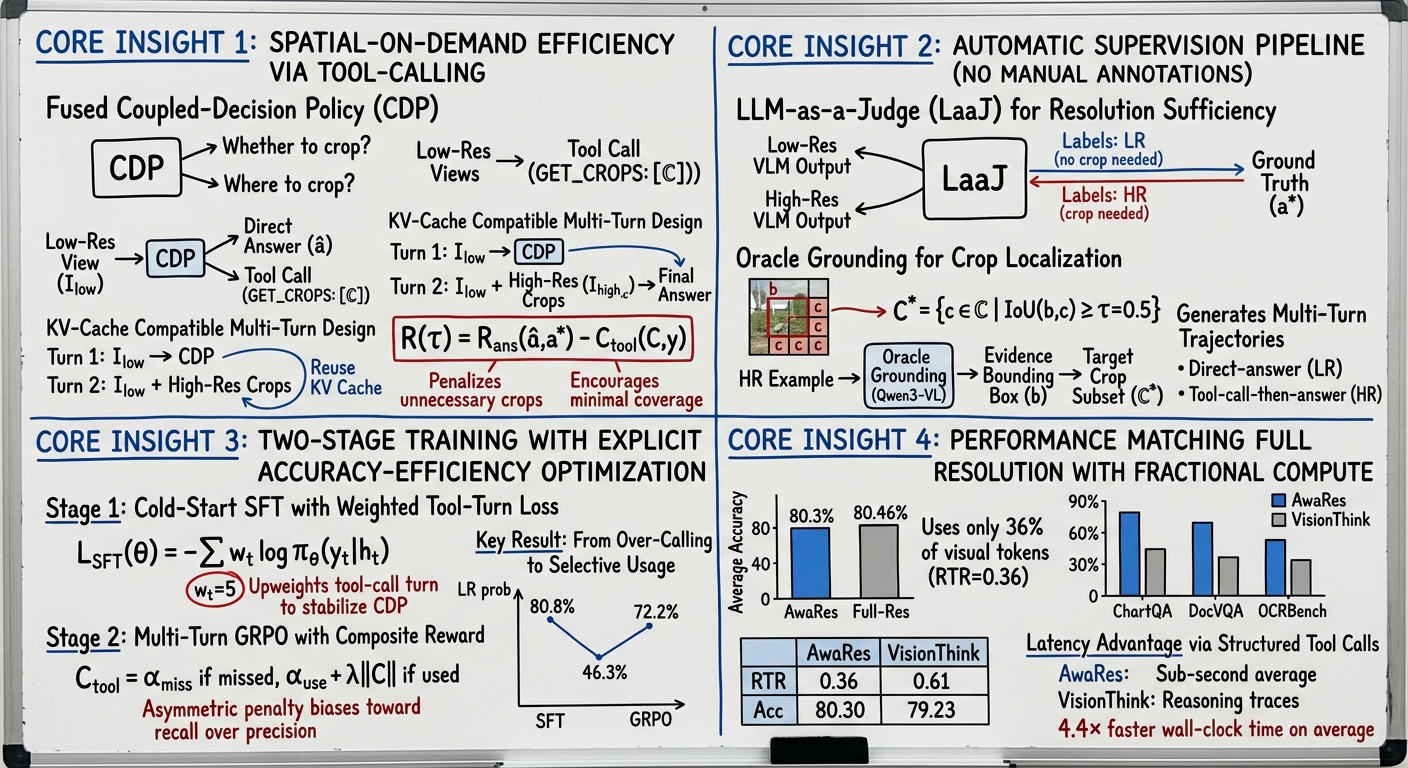 CORE INSIGHT 1: SPATIAL-ON-DEMAND EFFICIENCY
VIA TOOL-CALLING
Fused Coupled-Decision Policy (CDP)
CDP
Whether to crop?
Where to crop?
Low-Res
Views
Tool Call
(GET_CROPS: [ℂ]))
Low-Res
View
(I_low)
CDP
Direct
Answer (â)
Tool Call
(GET_CROPS: [ℂ])
KV-Cache Compatible Multi-Turn Design
Turn 1: I_low → CDP
Turn 2: I_low + High-Res (I_high,c) → Final
Crops
Answer
KV-Cache Compatible Multi-Turn Design
Turn 1: I_low → CDP
Turn 2: I_low + High-Res Crops
Reuse
KV Cache
R(τ) = R_ans(â,a*) − C_tool(C,y)
Penalizes
unnecessary crops
Encourages
minimal coverage
CORE INSIGHT 2: AUTOMATIC SUPERVISION PIPELINE
(NO MANUAL ANNOTATIONS)
LLM-as-a-Judge (LaaJ) for Resolution Sufficiency
Low-Res
VLM Output
High-Res
VLM Output
LaaJ
Labels: LR
(no crop needed)
Labels: HR
(crop needed)
Ground
Truth
(a*)
Oracle Grounding for Crop Localization
b
c
c
c c c
C* = {c ∈ ℂ | IoU(b,c) ≥ τ=0.5}
HR Example →
Oracle
Grounding
(Qwen3-VL)
Evidence
Bounding
Box (b)
Target
Crop
Subset (ℂ*)
Generates Multi-Turn
Trajectories
• Direct-answer (LR)
• Tool-call-then-answer (HR)
CORE INSIGHT 3: TWO-STAGE TRAINING WITH EXPLICIT
ACCURACY-EFFICIENCY OPTIMIZATION
Stage 1: Cold-Start SFT with Weighted Tool-Turn Loss
L_SFT(θ) = −∑ w_t log π_θ(y_t|h_t)
w_t=5
Upweights tool-call turn
to stabilize CDP
Stage 2: Multi-Turn GRPO with Composite Reward
C_tool = α_miss if missed, α_use + λ||C|| if used
Asymmetric penalty biases toward
recall over precision
Key Result: From Over-Calling
to Selective Usage
LR prob
80.8%
72.2%
46.3%
SFT
GRPO
CORE INSIGHT 4: PERFORMANCE MATCHING FULL
RESOLUTION WITH FRACTIONAL COMPUTE
Average Accuracy
80
40
0
80.3%
80.46%
AwaRes
Full-Res
Uses only 36%
of visual tokens
(RTR=0.36)
90%
60%
30%
AwaRes
VisionThink
ChartQA
DocVQA
OCRBench
AwaRes VisionThink
RTR 0.36 0.61
Acc 80.30 79.23
Latency Advantage via Structured Tool Calls
AwaRes: Sub-second average
VisionThink: Reasoning traces
4.4× faster wall-clock time on average